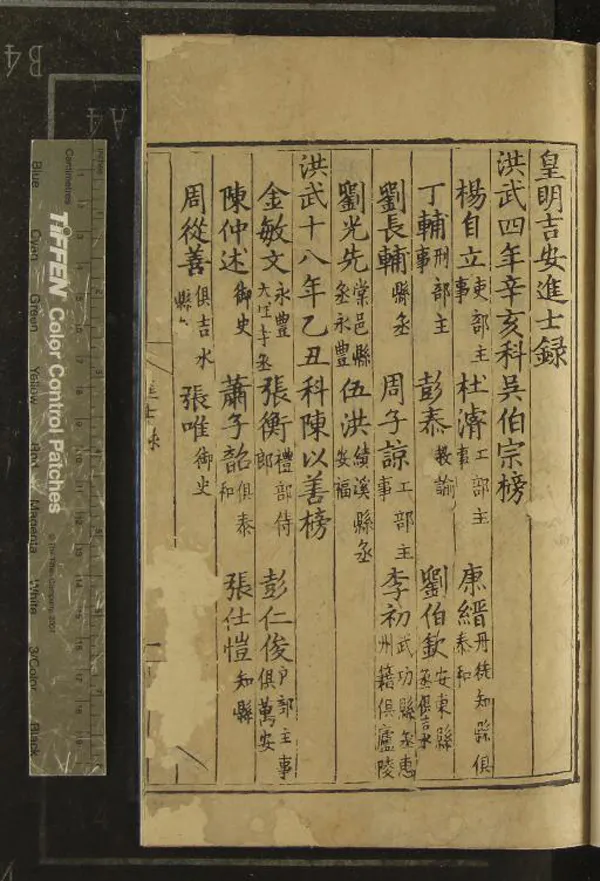 皇明吉安進士録
洪武四年辛亥科吳伯宗榜
楊自立吏部主事 杜濬工部主事 康縉丹徒知縣俱泰和
丁輔刑部主事 彭泰教諭 劉伯欽安東縣丞俱吉水
劉長輔縣丞 周子諒工部主事 李初武功縣丞惠州籍俱廬陵
劉光先棠邑縣丞永豐 伍洪績溪縣丞安福
洪武十八年乙丑科陳以善榜
金敏文永豐大理寺丞 張衡禮部侍郎 彭仁俊戶部主事俱萬安
陳仲述御史 蕭子韶俱泰和 張仕愷知縣
周從善俱吉水縣 張唯御史
進士錄
一
B4
A4
Inches
Centimetres
TIFFEN Color Control Patches
© The Tiffen Company, 2007
Blue
Cyan
Green
Yellow
Red
Magenta
White
3/Color
Black